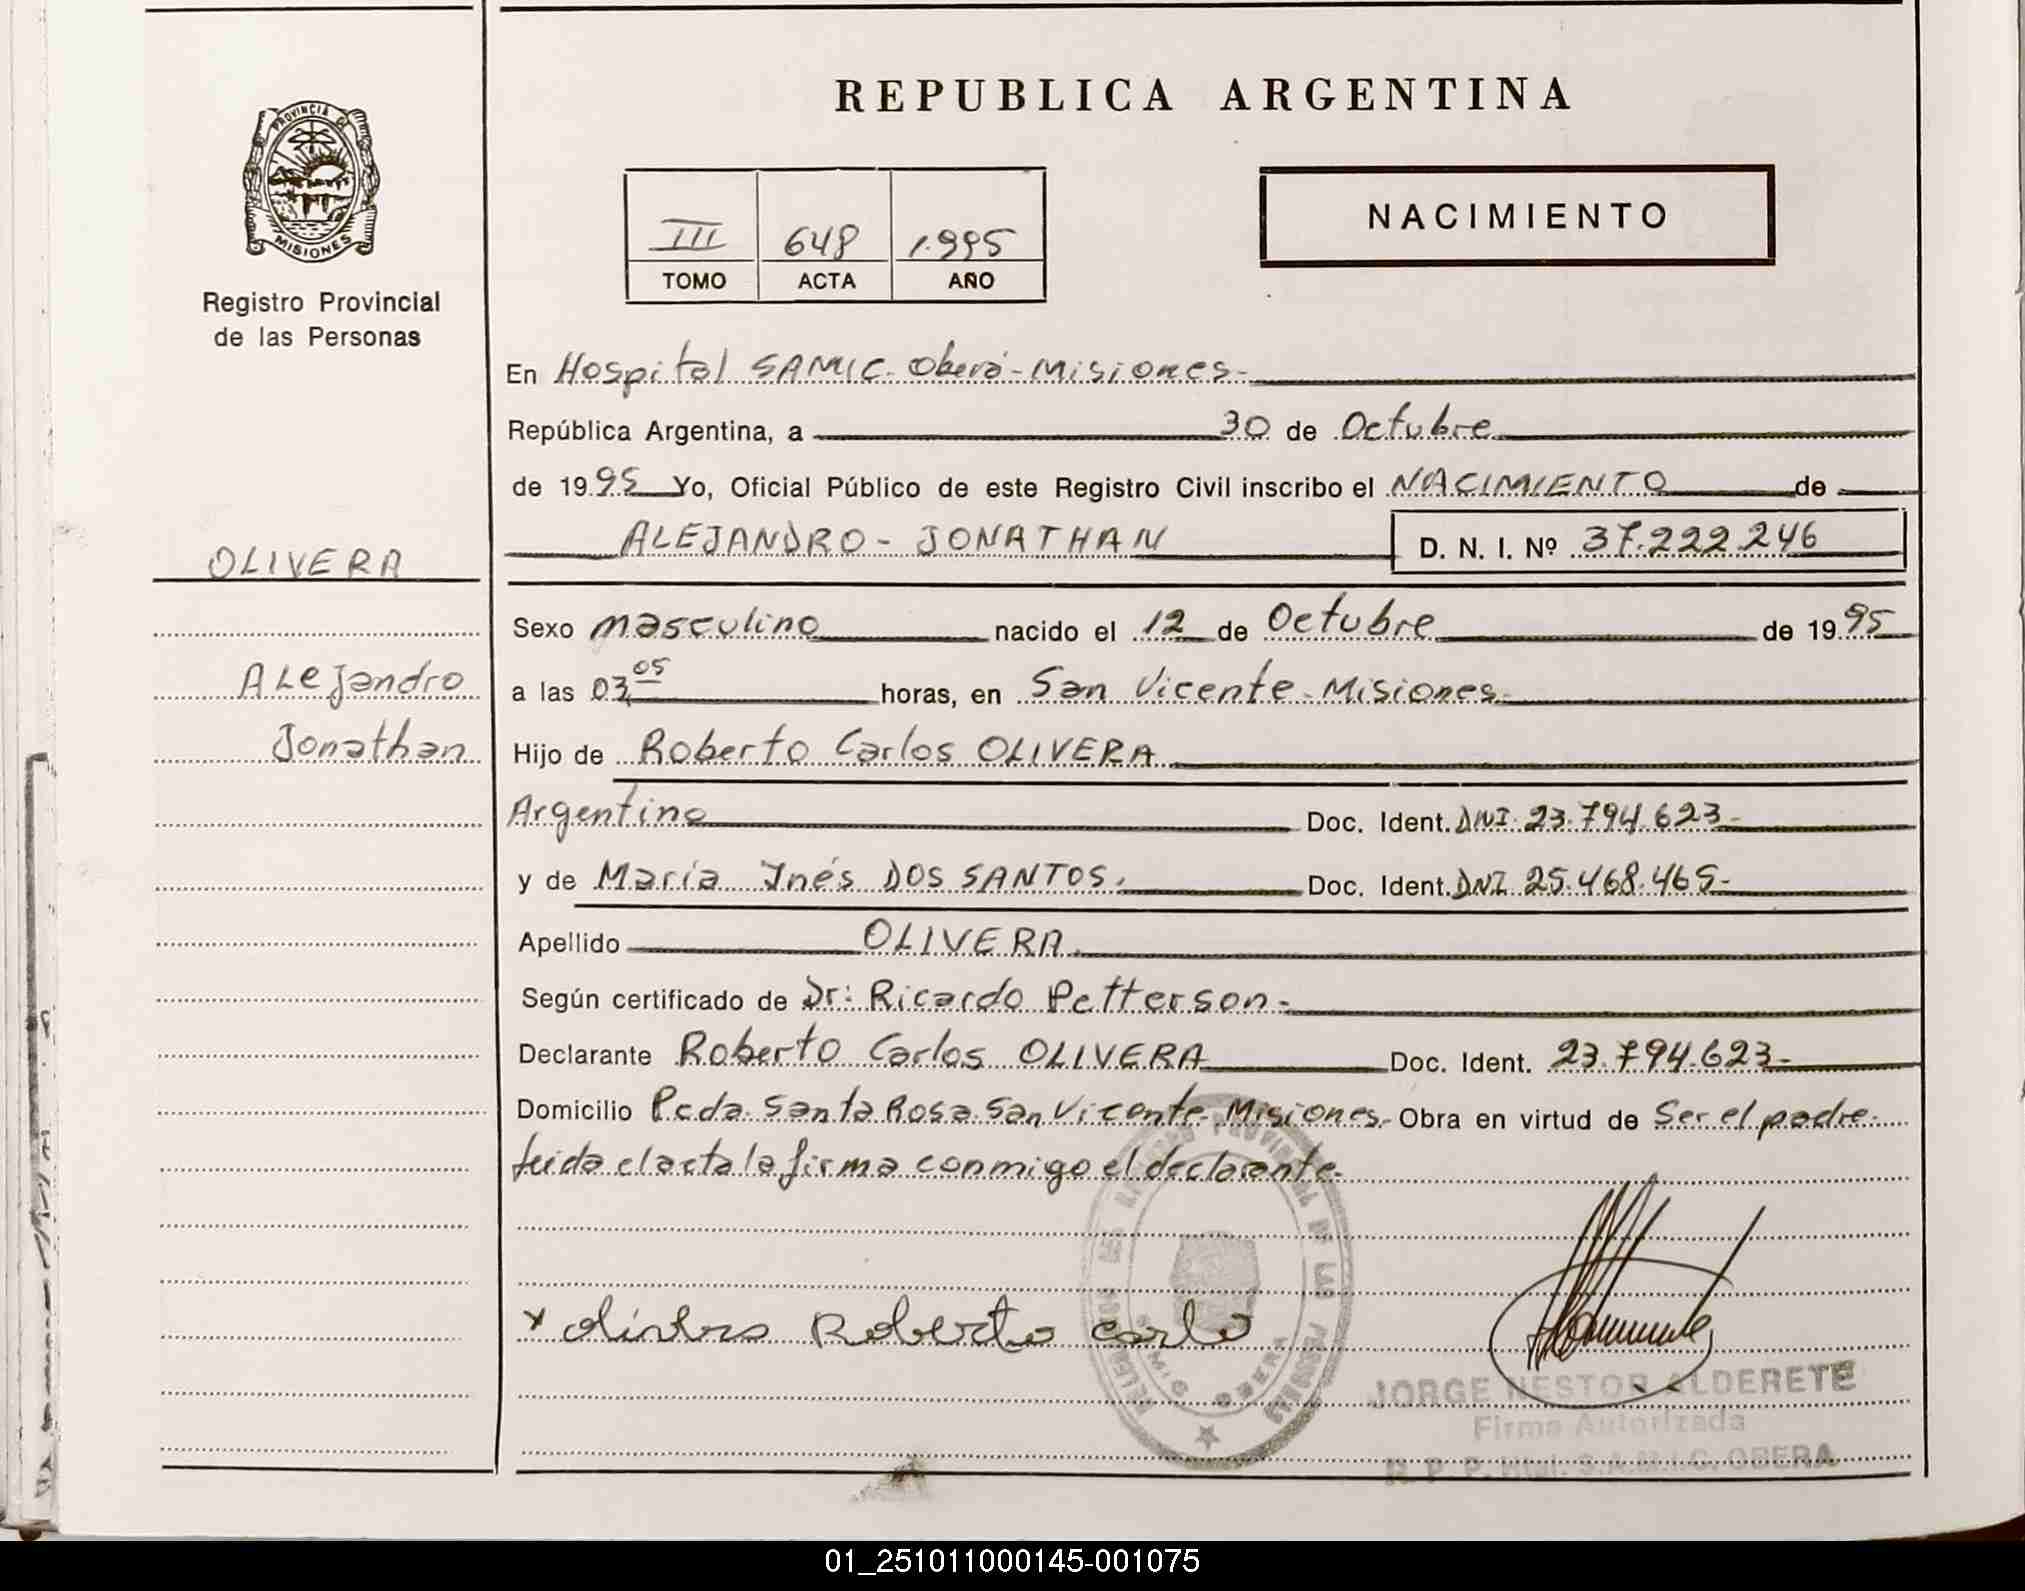 REPUBLICA ARGENTINA
PROVINCIA DE
MISIONES
Registro Provincial
de las Personas
III 648 1.995
TOMO ACTA AÑO
NACIMIENTO
En Hospital SAMIC. Oberá-Misiones-
República Argentina, a 30 de Octubre
de 1995 Yo, Oficial Público de este Registro Civil inscribo el NACIMIENTO de
ALEJANDRO - JONATHAN D. N. I. Nº 37.222.246
OLIVERA
Alejandro
Jonathan
Sexo masculino nacido el 12 de Octubre de 1995
a las 03,05 horas, en San Vicente-Misiones-
Hijo de Roberto Carlos OLIVERA
Argentino Doc. Ident. DNI 23.794.623-
y de María Inés DOS SANTOS. Doc. Ident. DNI 25.468.465-
Apellido OLIVERA.
Según certificado de Dr: Ricardo Petterson-
Declarante Roberto Carlos OLIVERA Doc. Ident. 23.794.623-
Domicilio Pcda. Santa Rosa San Vicente-Misiones- Obra en virtud de Ser el padre-
leida el acta la firma conmigo el declarante-
x Roberto Carlo
REGISTRO PROVINCIAL DE LAS PERSONAS
OBERA
JORGE NESTOR ALDERETE
Firma Autorizada
R. P. P. Htal. S.A.M.I.C. OBERA
01_251011000145-001075